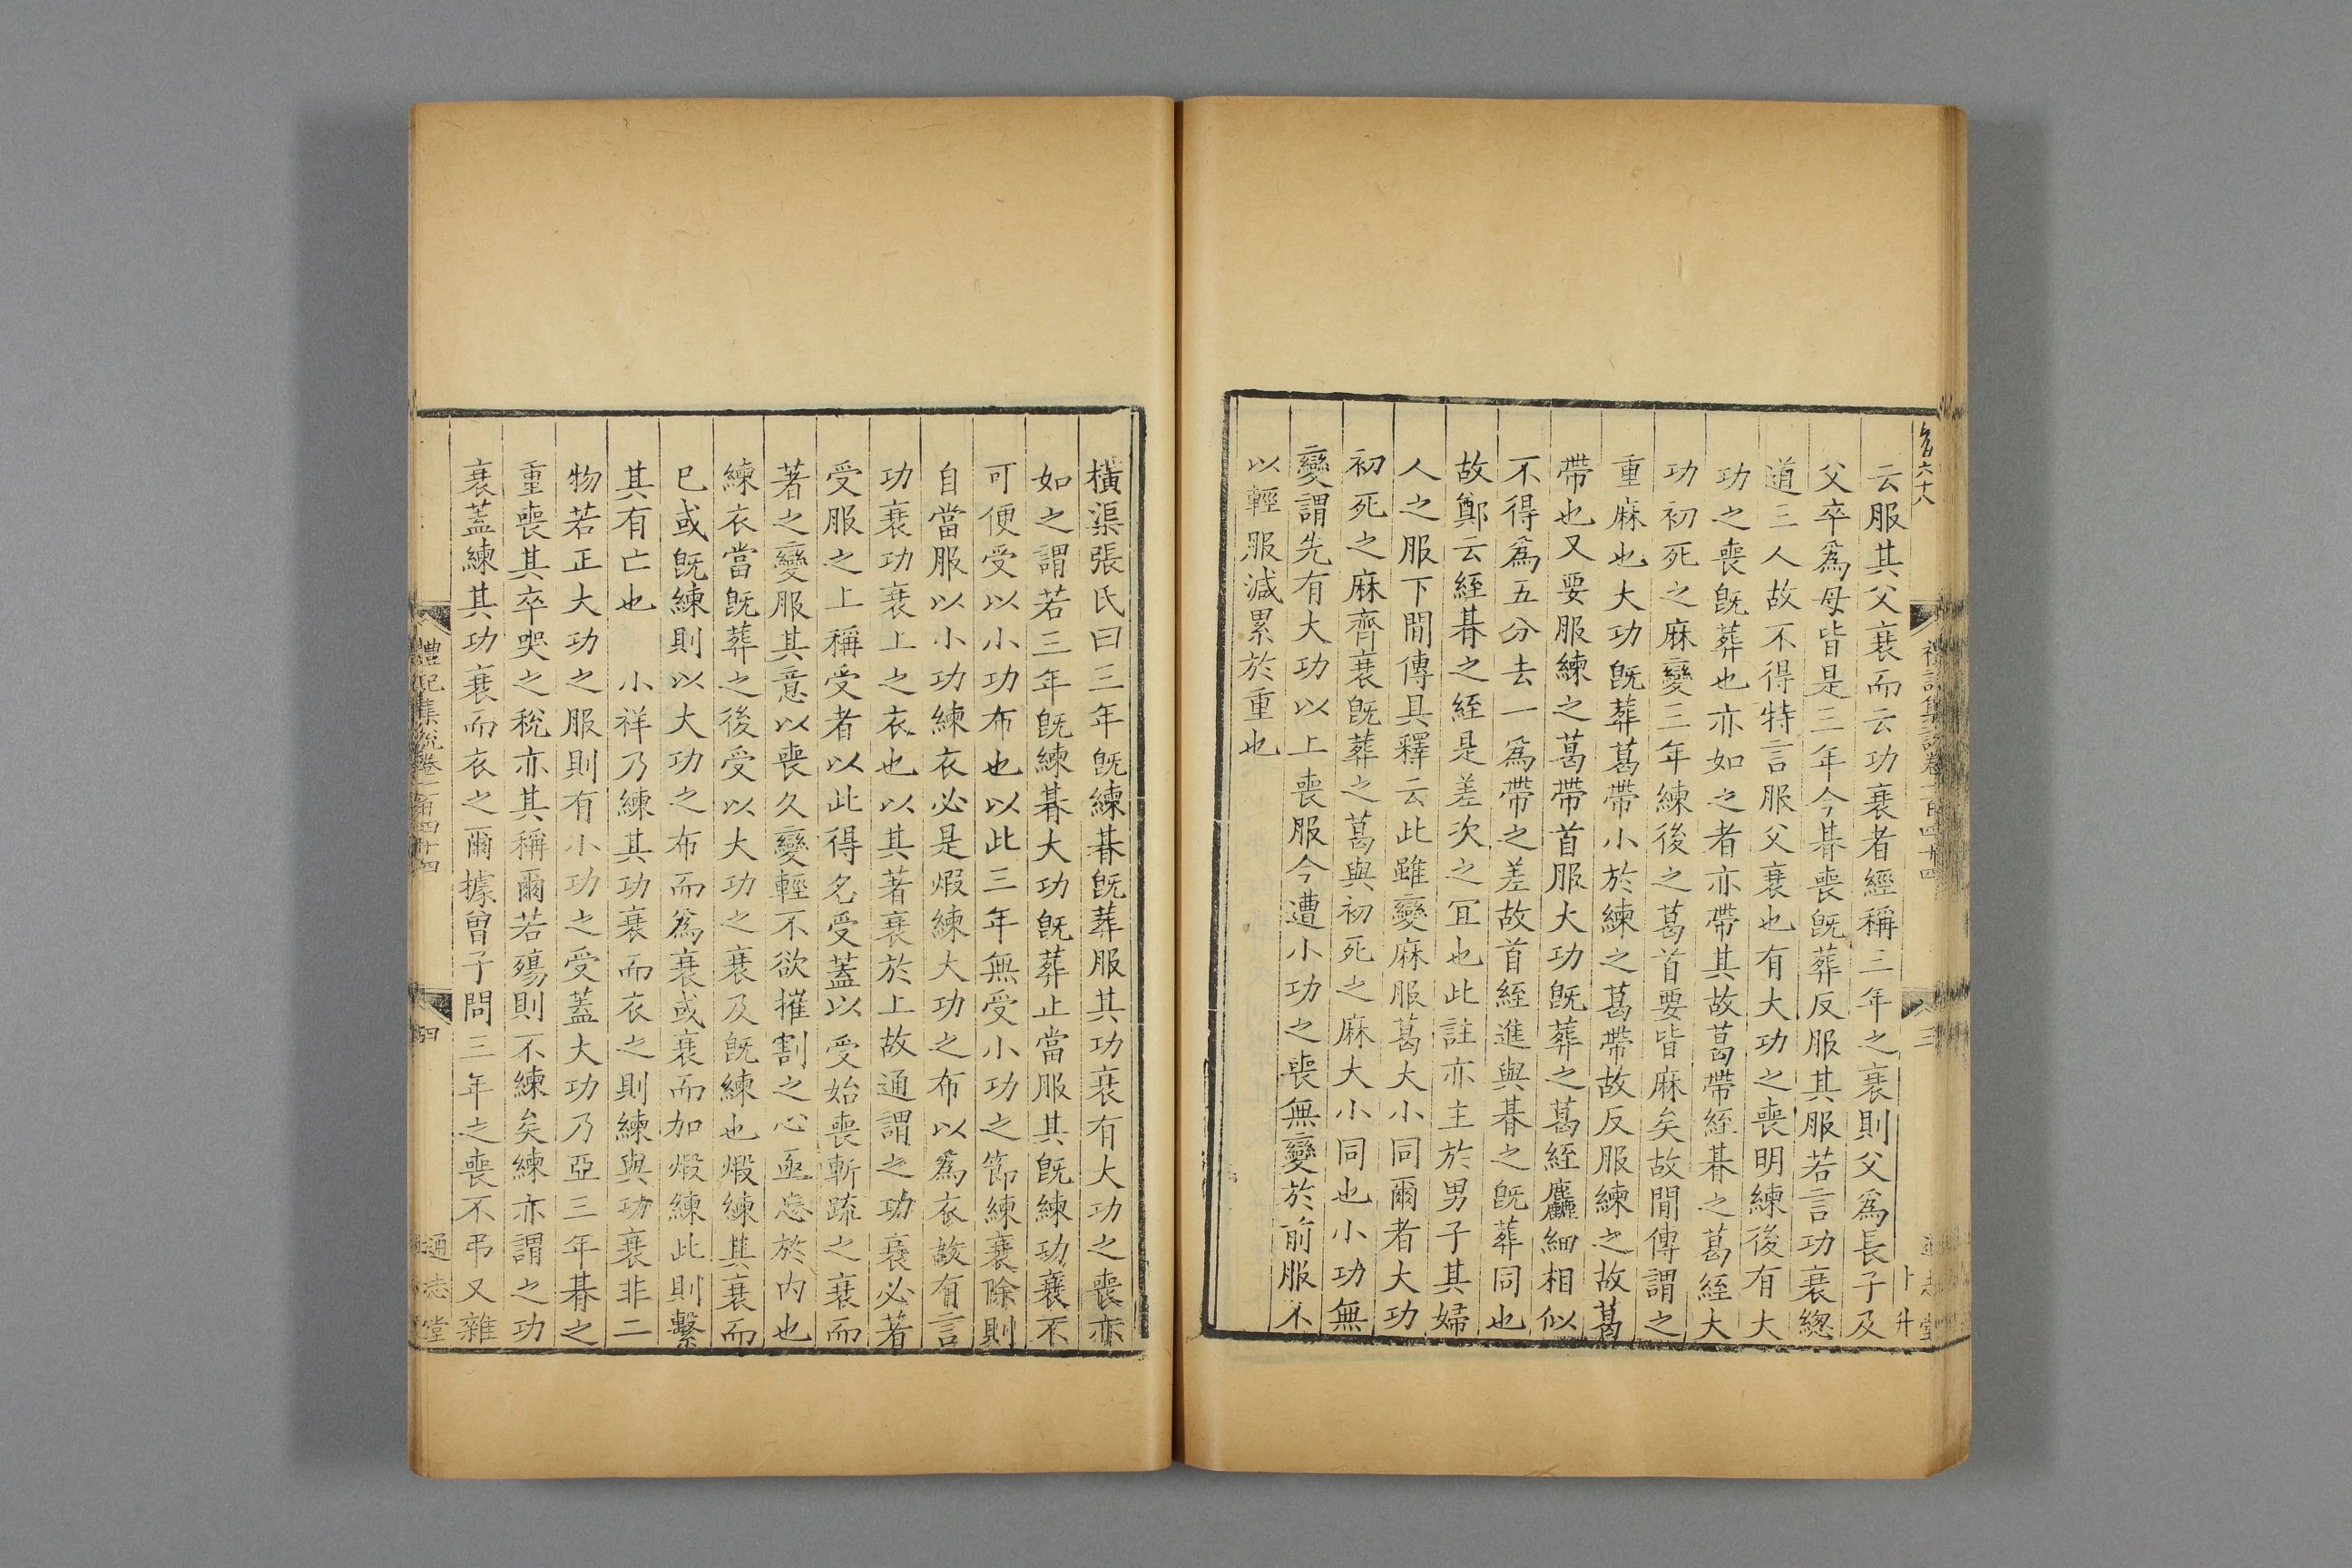 云服其父衰而云功衰者經稱三年之衰則父爲長子及
父卒爲母皆是三年今朞喪既葬反服其服若言功衰緦
道三人故不得特言服父衰也有大功之喪明練後有大
功之喪既葬也亦如之者亦帶其故葛帶絰朞之葛絰大
功初死之麻變三年練後之葛首要皆麻矣故閒傳謂之
重麻也大功既葬葛帶小於練之葛帶故反服練之故葛
帶也又要服練之葛帶首服大功既葬之葛絰麤細相似
不得爲五分去一爲帶之差故首絰進與朞之既葬同也
故鄭云絰朞之絰是差次之冝也此註亦主於男子其婦
人之服下閒傳具釋云此雖變麻服葛大小同爾者大功
初死之麻齊衰既葬之葛與初死之麻大小同也小功無
變謂先有大功以上喪服今遭小功之喪無變於前服不
以輕服減累於重也
橫渠張氏曰三年既練朞既葬服其功衰有大功之喪亦
如之謂若三年既練朞大功既葬止當服其既練功衰不
可便受以小功布也以此三年無受小功之節練衰除則
自當服以小功練衣必是煅練大功之布以爲衣故有言
功衰功衰上之衣也以其著衰於上故通謂之功衰必著
受服之上稱受者以此得名受蓋以受始喪斬疏之衰而
著之變服其意以喪久變輕不欲摧割之心亟忘於內也
練衣當既葬之後受以大功之衰及既練也煅練其衰而
已或既練則以大功之布而爲衰或衰而加煅練此則繫
其有亡也　小祥乃練其功衰而衣之則練與功衰非二
物若正大功之服則有小功之受蓋大功乃亞三年朞之
重喪其卒哭之稅亦其稱爾若殤則不練矣練亦謂之功
衰蓋練其功衰而衣之爾據曾子問三年之喪不弔又雜
禮記集說卷一百四十四
四
通志堂